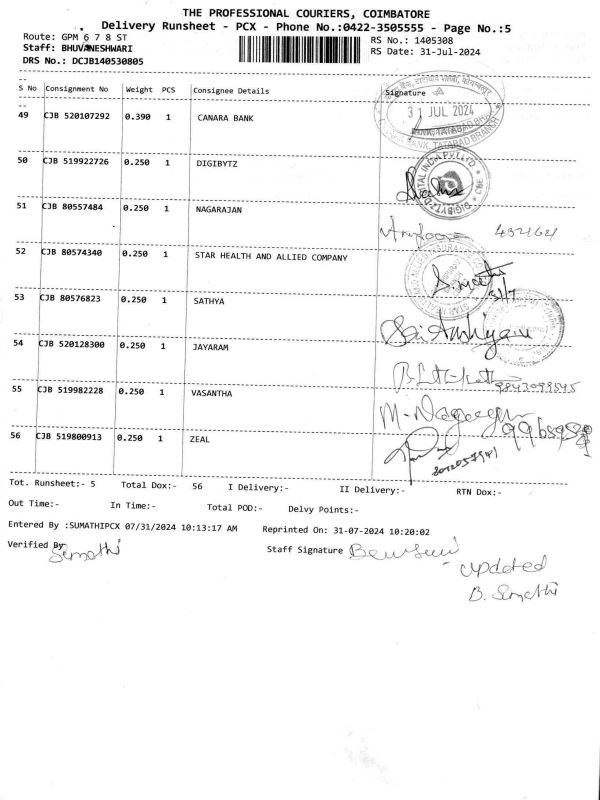 THE PROFESSIONAL COURIERS, COIMBATORE
Delivery Runsheet - PCX - Phone No.:0422-3505555 - Page No.:5
Route: GPM 6 7 8 ST
RS No.: 1405308
Staff: BHUVANESHWARI
RS Date: 31-Jul-2024
DRS No.: DCJB140530805
S No Consignment No Weight PCS Consignee Details Signature
49 CJB 520107292 0.390 1 CANARA BANK
31 JUL 2024
TATABAD BRANCH
50 CJB 519922726 0.250 1 DIGIBYTZ
51 CJB 80557484 0.250 1 NAGARAJAN
52 CJB 80574340 0.250 1 STAR HEALTH AND ALLIED COMPANY
31/7
53 CJB 80576823 0.250 1 SATHYA
54 CJB 520128300 0.250 1 JAYARAM
55 CJB 519982228 0.250 1 VASANTHA
56 CJB 519800913 0.250 1 ZEAL
Tot. Runsheet:- 5 Total Dox:- 56 I Delivery:- II Delivery:- RTN Dox:-
Out Time:- In Time:- Total POD:- Delvy Points:-
Entered By :SUMATHIPCX 07/31/2024 10:13:17 AM Reprinted On: 31-07-2024 10:20:02
Verified By Sumathi Staff Signature
updated
B. Sumathi